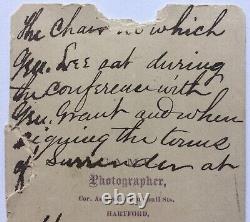 The chair in which
Gen. Lee sat during
conference with
Gen. Grant and when
signing the terms
of surrender at
Photographer,
Cor. As
Sts.
HARTFORD,